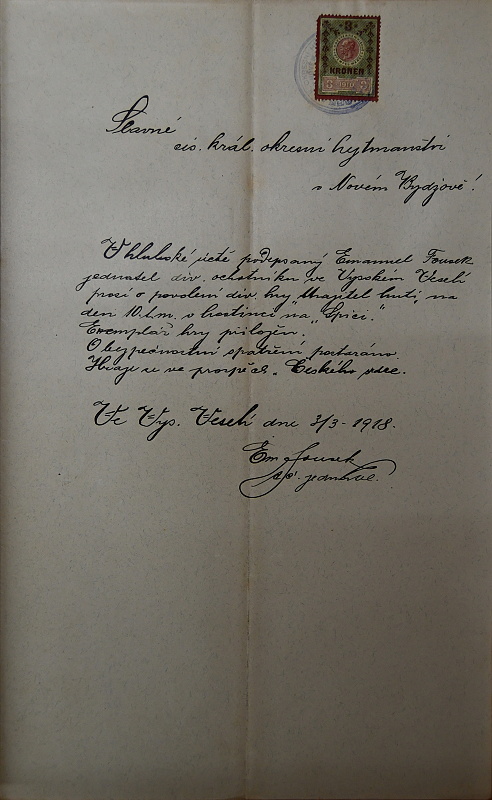 3
KRONEN
3 1910 3
Slavné
cís. král. okresní hejtmanství
v Novém Bydžově!
V hluboké úctě podepsaný Emanuel Fousek
jednatel div. ochotníků ve Vysokém Veselí
prosí o povolení div. hry „Majitel hutí, na
den 10. t. m. v hostinci na „Špici."
Exemplář hry přiložen.
O bezpečnostní opatření postaráno.
Hraje se ve prospěch „Českého srdce.
Ve Vys. Veselí dne 3/3 - 1918.
Em Fousek
jednatel.